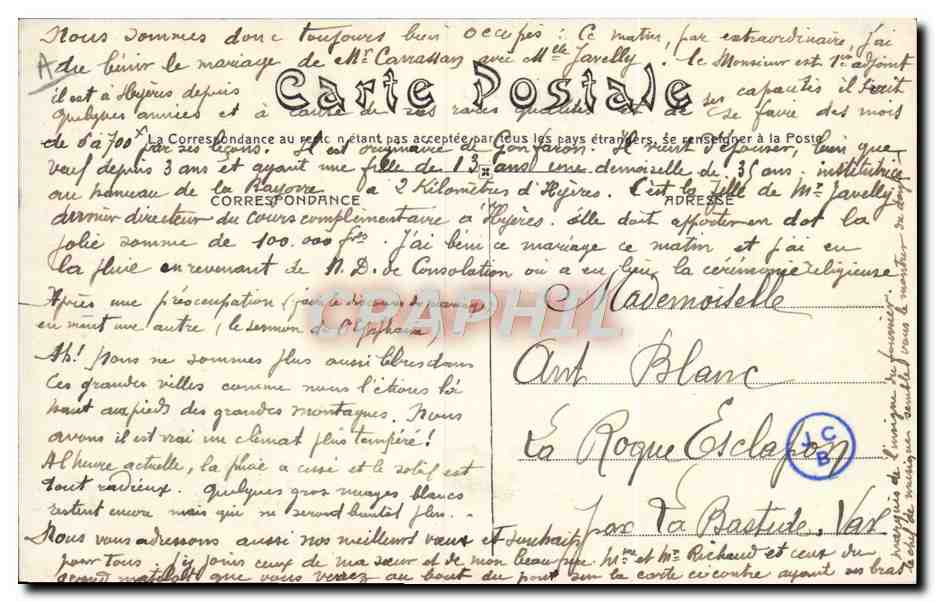 Nous sommes donc toujours bien occupés : Ce matin, par extraordinaire, j'ai
A dû bénir le mariage de Mr Carrassan avec Melle Javelly. Le Monsieur est 1er adjoint
Carte Postale
il est à Hyères depuis ses capacités il
quelques années et à cause de ses rares qualités et de se faire des mois
de 6 à 700 x par ses leçons. Il est originaire de Il vient d'épouser, bien que
La Correspondance au recto n'étant pas acceptée par tous les pays étrangers, se renseigner à la Poste
veuf depuis 3 ans et ayant une fille de 13 ans une demoiselle de 35 ans, institutrice
au hameau de la Bayorre à 2 Kilomètres d'Hyères. C'est la fille de Mr Javelly
CORRESPONDANCE
ADRESSE
dernier directeur du cours complémentaire à Hyères. Elle doit apporter en dot la
jolie somme de 100.000 frs. J'ai béni ce mariage ce matin et j'ai eu
la pluie en revenant de N. D. de Consolation où a eu lieu la cérémonie religieuse
Après une préoccupation (faire le discours de mariage)
en vient une autre, (le sermon de l'Epiphanie)
Ah! nous ne sommes plus aussi libres dans
ces grandes villes comme nous l'étions là
haut aux pieds des grandes montagnes. Nous
avons il est vrai un climat plus tempéré!
A l'heure actuelle, la pluie a cessé et le soleil est
tout radieux. Quelques gros nuages blancs
restent encore mais qui ne seront bientôt plus.
Nous vous adressons aussi nos meilleurs vœux et souhaits
pour tous. J'y joins ceux de ma sœur et de mon beau frère. Mme et Mr Richaud et ceux du
grand que vous verrez au bout du pont sur la carte ci contre ayant au bras
Mademoiselle
Ant Blanc
La Roque Esclapon
par La Bastide, Var
JCB
CPAPHIL